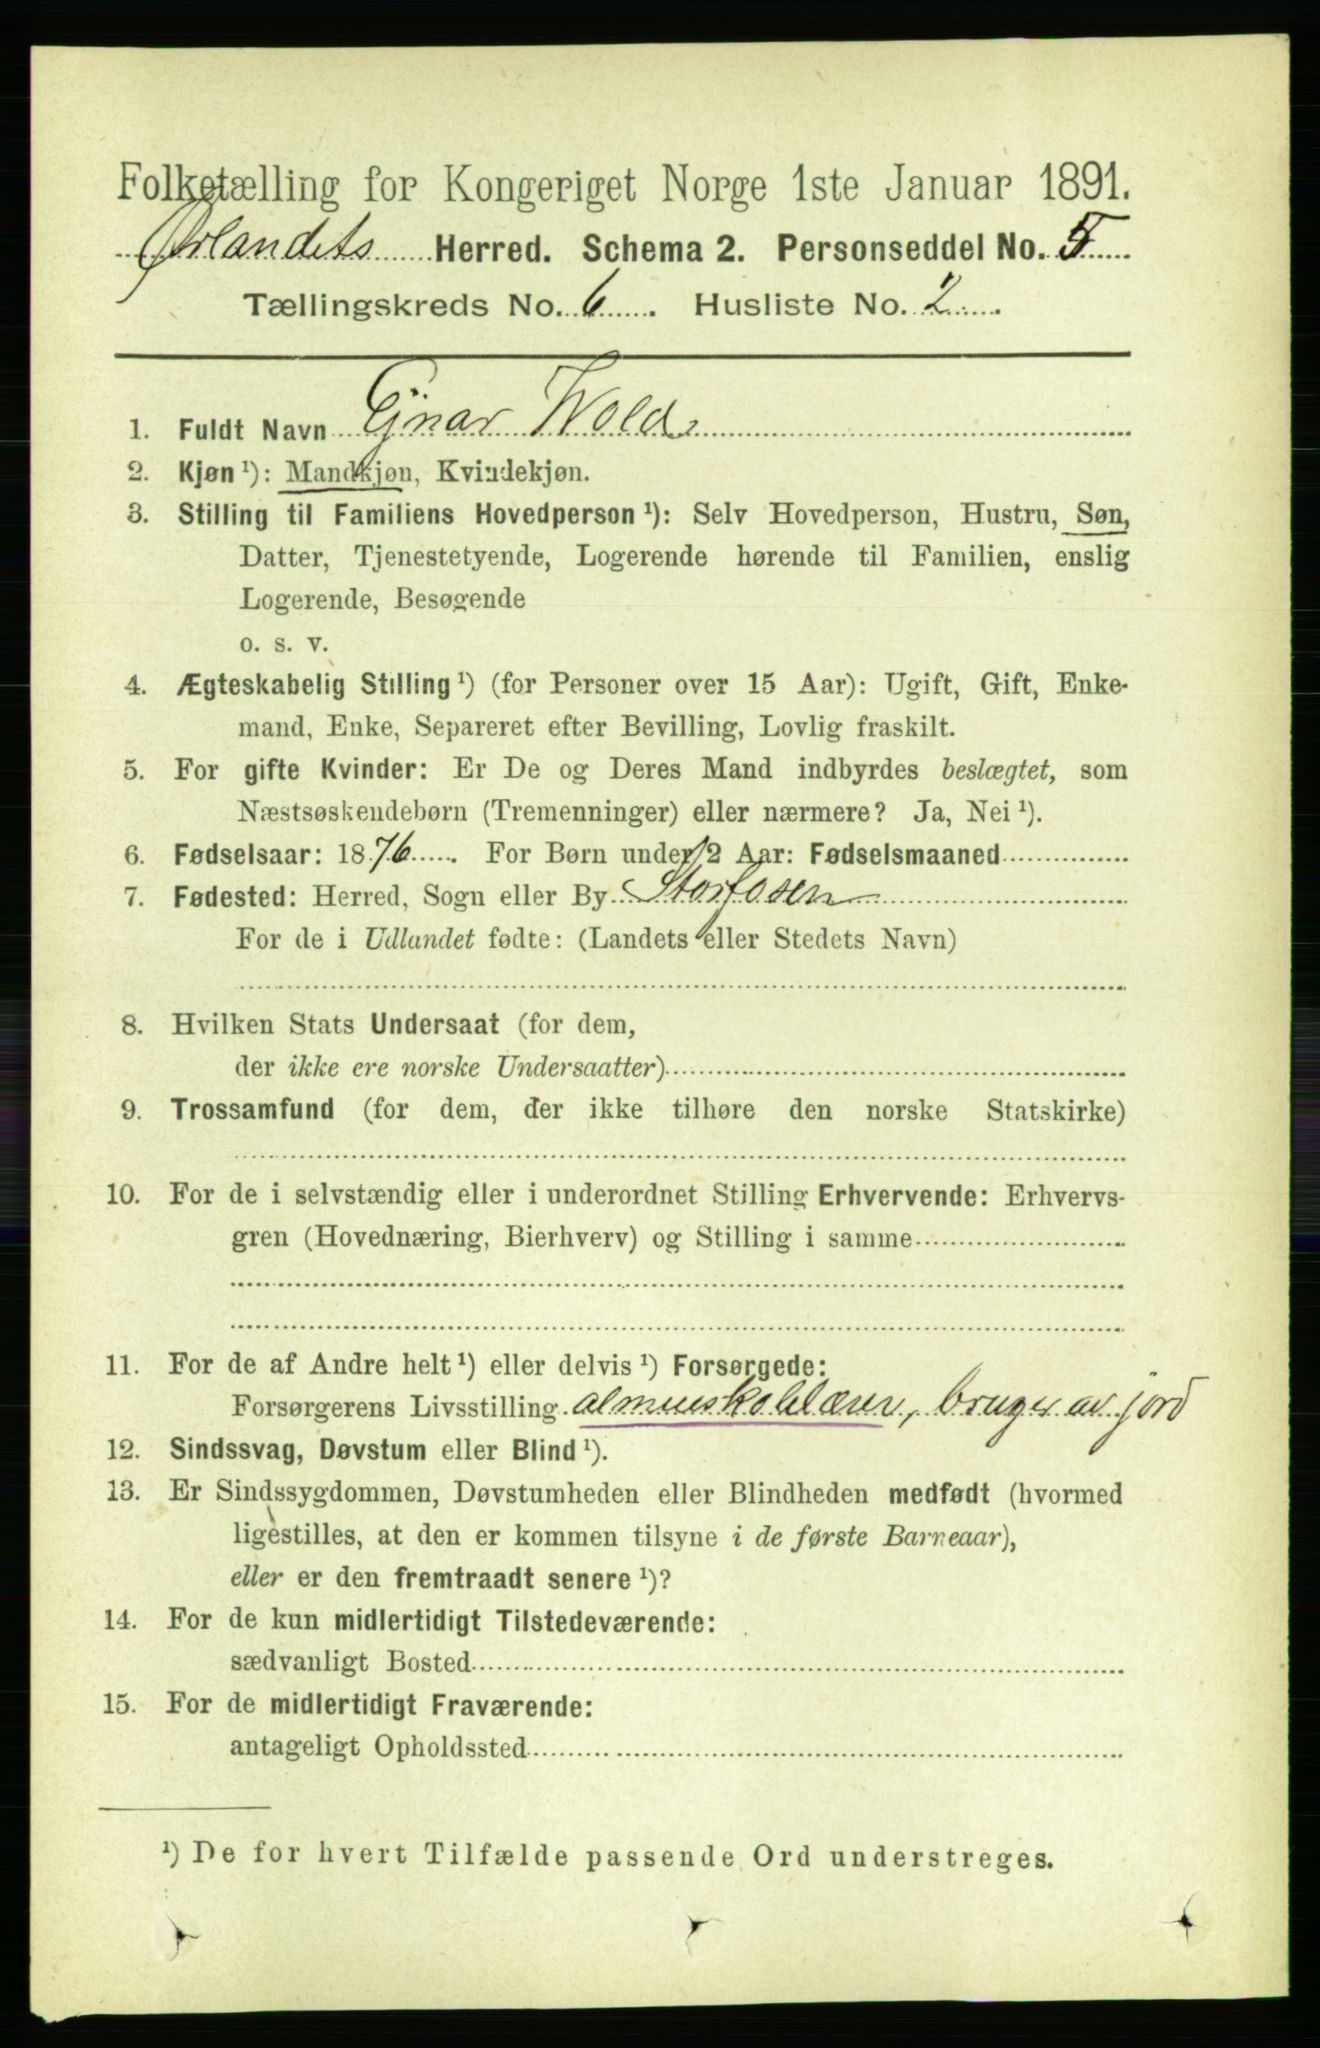 Folketælling for Kongeriget Norge 1ste Januar 1891.
Ørlandets Herred. Schema 2. Personseddel No. 5
Tællingskreds No. 6. Husliste No. 2.
1. Fuldt Navn Ejnar Wold
2. Kjøn ¹): Mandkjøn, Kvindekjøn.
3. Stilling til Familiens Hovedperson ¹): Selv Hovedperson, Hustru, Søn,
Datter, Tjenestetyende, Logerende hørende til Familien, enslig
Logerende, Besøgende
o. s. v.
4. Ægteskabelig Stilling ¹) (for Personer over 15 Aar): Ugift, Gift, Enke-
mand, Enke, Separeret efter Bevilling, Lovlig fraskilt.
5. For gifte Kvinder: Er De og Deres Mand indbyrdes beslægtet, som
Næstsøskendebørn (Tremenninger) eller nærmere? Ja, Nei ¹).
6. Fødselsaar: 1876. For Børn under 2 Aar: Fødselsmaaned
7. Fødested: Herred, Sogn eller By Storfosen
For de i Udlandet fødte: (Landets eller Stedets Navn)
8. Hvilken Stats Undersaat (for dem,
der ikke ere norske Undersaatter)
9. Trossamfund (for dem, der ikke tilhøre den norske Statskirke)
10. For de i selvstændig eller i underordnet Stilling Erhvervende: Erhvervs-
gren (Hovednæring, Bierhverv) og Stilling i samme
11. For de af Andre helt ¹) eller delvis ¹) Forsørgede:
Forsørgerens Livsstilling almueskolelærer, bruger av jord
12. Sindssvag, Døvstum eller Blind ¹).
13. Er Sindssygdommen, Døvstumheden eller Blindheden medfødt (hvormed
ligestilles, at den er kommen tilsyne i de første Barneaar),
eller er den fremtraadt senere ¹)?
14. For de kun midlertidigt Tilstedeværende:
sædvanligt Bosted
15. For de midlertidigt Fraværende:
antageligt Opholdssted
¹) De for hvert Tilfælde passende Ord understreges.